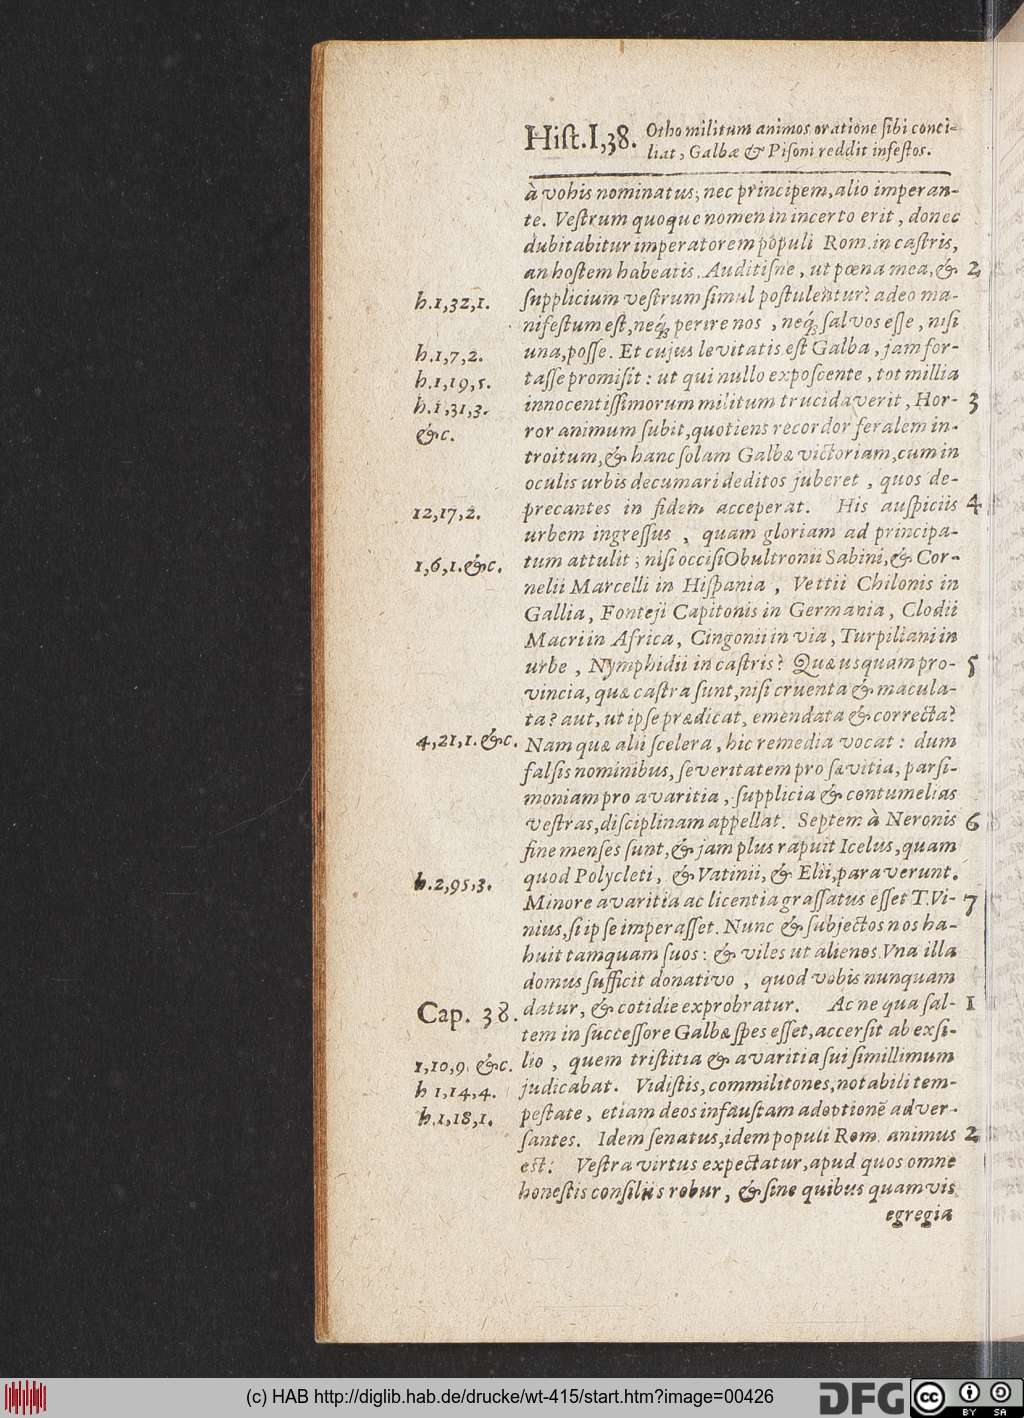 Hiſt.I,38. Otho militum animos oratione ſibi conci-
liat, Galbæ & Piſoni reddit infeſtos.
à vobis nominatus; nec principem, alio imperan-
te. Veſtrum quoque nomen in incerto erit, donec
dubitabitur imperatorem populi Rom. in caſtris,
an hoſtem habeatis. Auditiſne, ut pœna mea, & 2
h.1,32,1. ſupplicium veſtrum ſimul poſtulentur? adeo ma-
nifeſtum eſt, neq́; perire nos, neq́; ſalvos eſſe, niſi
h.1,7,2. una, poſſe. Et cujus levitatis eſt Galba, jam for-
h.1,19,5. taſſe promiſit: ut qui nullo expoſcente, tot millia
h.1,31,3. innocentiſſimorum militum trucidaverit, Hor- 3
&c. ror animum ſubit, quotiens recordor feralem in-
troitum, & hanc ſolam Galbæ victoriam, cum in
oculis urbis decumari deditos juberet, quos de-
12,17,2. precantes in fidem acceperat. His auſpiciis 4
urbem ingreſſus, quam gloriam ad principa-
1,6,1.&c. tum attulit; niſi occiſi Obultronii Sabini, & Cor-
nelii Marcelli in Hiſpania, Vettii Chilonis in
Gallia, Fonteji Capitonis in Germania, Clodii
Macri in Africa, Cingonii in via, Turpiliani in
urbe, Nymphidii in caſtris? Quæ usquam pro- 5
vincia, quæ caſtra ſunt, niſi cruenta & macula-
ta? aut, ut ipſe prædicat, emendata & correcta?
4,21,1.&c. Nam quæ alii ſcelera, hic remedia vocat: dum
falſis nominibus, ſeveritatem pro ſævitia, parſi-
moniam pro avaritia, ſupplicia & contumelias
veſtras, diſciplinam appellat. Septem à Neronis 6
fine menſes ſunt, & jam plus rapuit Icelus, quam
h.2,95,3. quod Polycleti, & Vatinii, & Elii, paraverunt.
Minore avaritia ac licentia graſſatus eſſet T.Vi- 7
nius, ſi ipſe imperaſſet. Nunc & ſubjectos nos ha-
buit tamquam ſuos: & viles ut alienos. Vna illa
domus ſufficit donativo, quod vobis nunquam
Cap. 38. datur, & cotidie exprobratur. Ac ne qua ſal- 1
tem in ſucceſſore Galbæ ſpes eſſet, accerſit ab exſi-
1,10,9. &c. lio, quem triſtitia & avaritia ſui ſimillimum
h 1,14,4. judicabat. Vidiſtis, commilitones, notabili tem-
h.1,18,1. peſtate, etiam deos infauſtam adoptionē adver-
ſantes. Idem ſenatus, idem populi Rom. animus 2
eſt: Veſtra virtus expectatur, apud quos omne
honeſtis conſiliis robur, & ſine quibus quamvis
egregia
(c) HAB http://diglib.hab.de/drucke/wt-415/start.htm?image=00426
DFG
cc BY SA